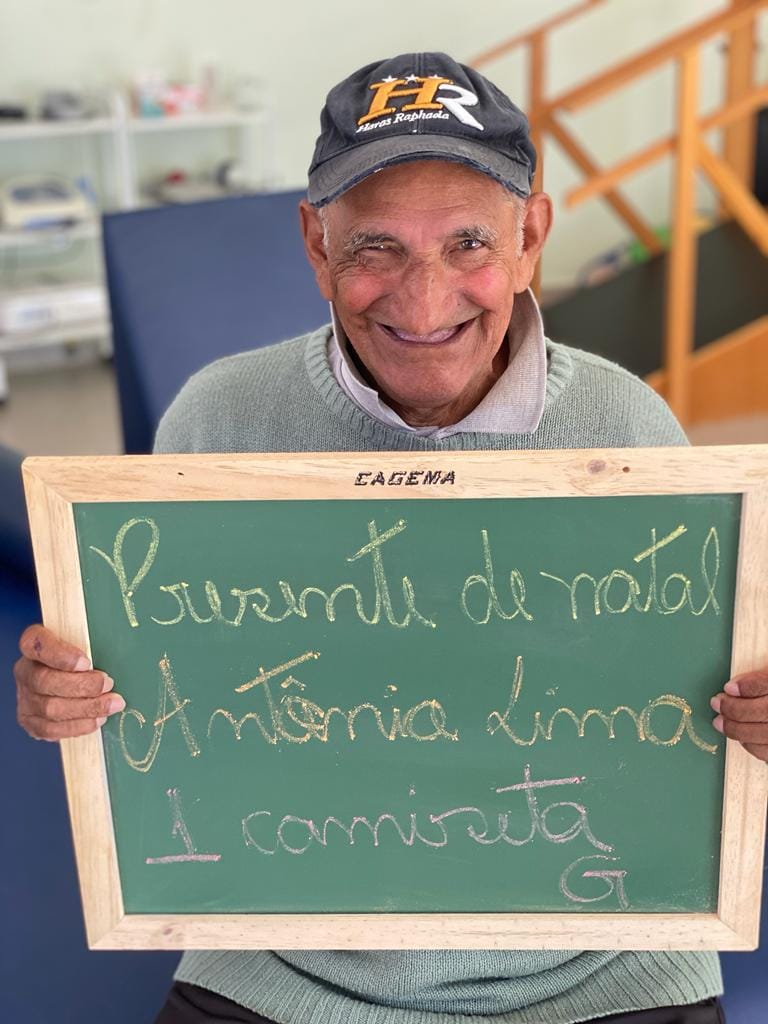 HR
Haras Raphaela
CAGEMA
Presente de natal
Antônia Lima
1 camiseta
G